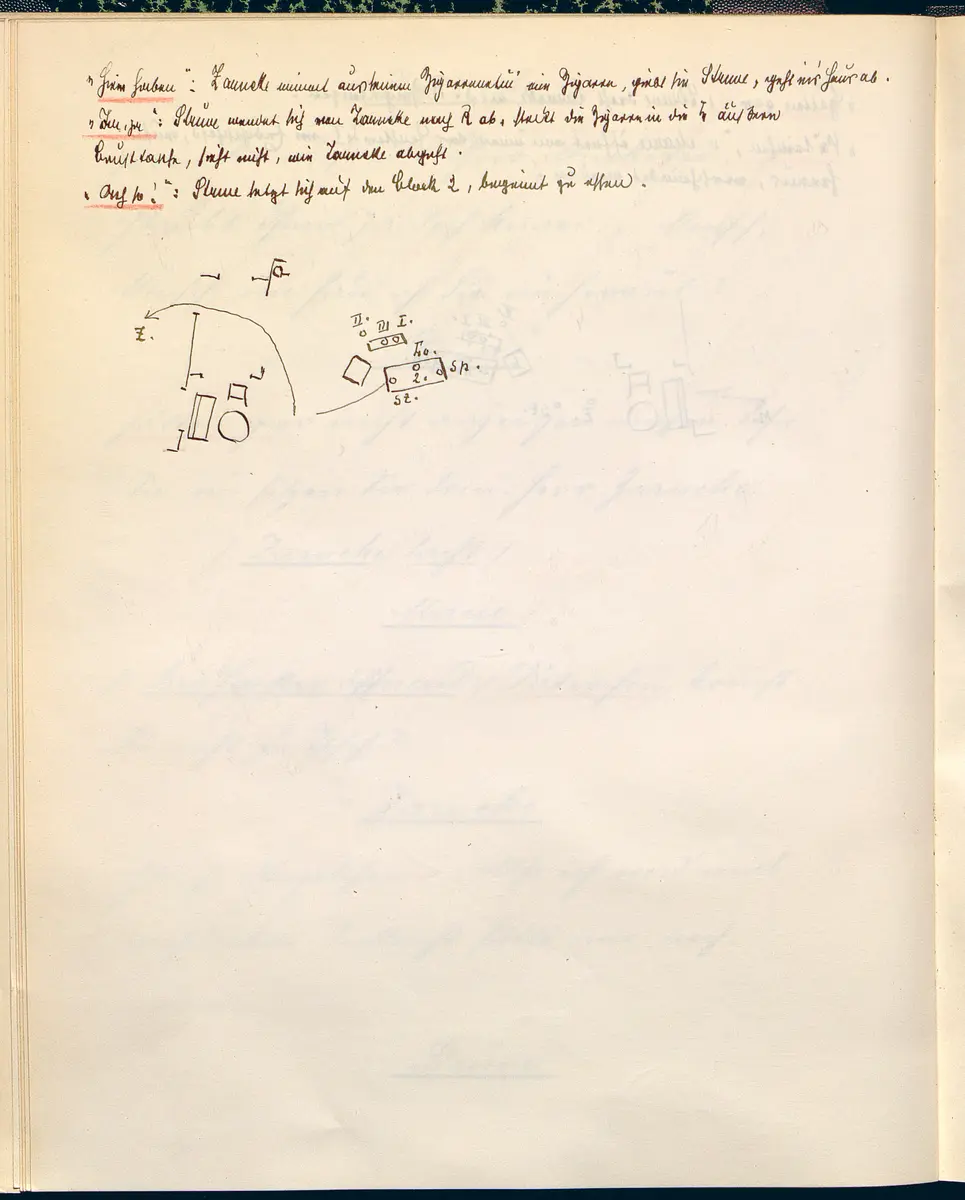 "Hier haben": Zarncke nimmt aus seinem Zigarrenetui eine Zigarre, giebt sie Struve, geht ins Haus ab.
"Ja, ja": Struve wendet sich von Zarncke nach R ab, steckt die Zigarre in die äußere
Brusttasche, sieht nicht, wie Zarncke abgeht.
"Ach so!": Struve setzt sich auf den Block 2, beginnt zu essen.
Z.
II. III I.
Lo.
2. Sp.
Sz.